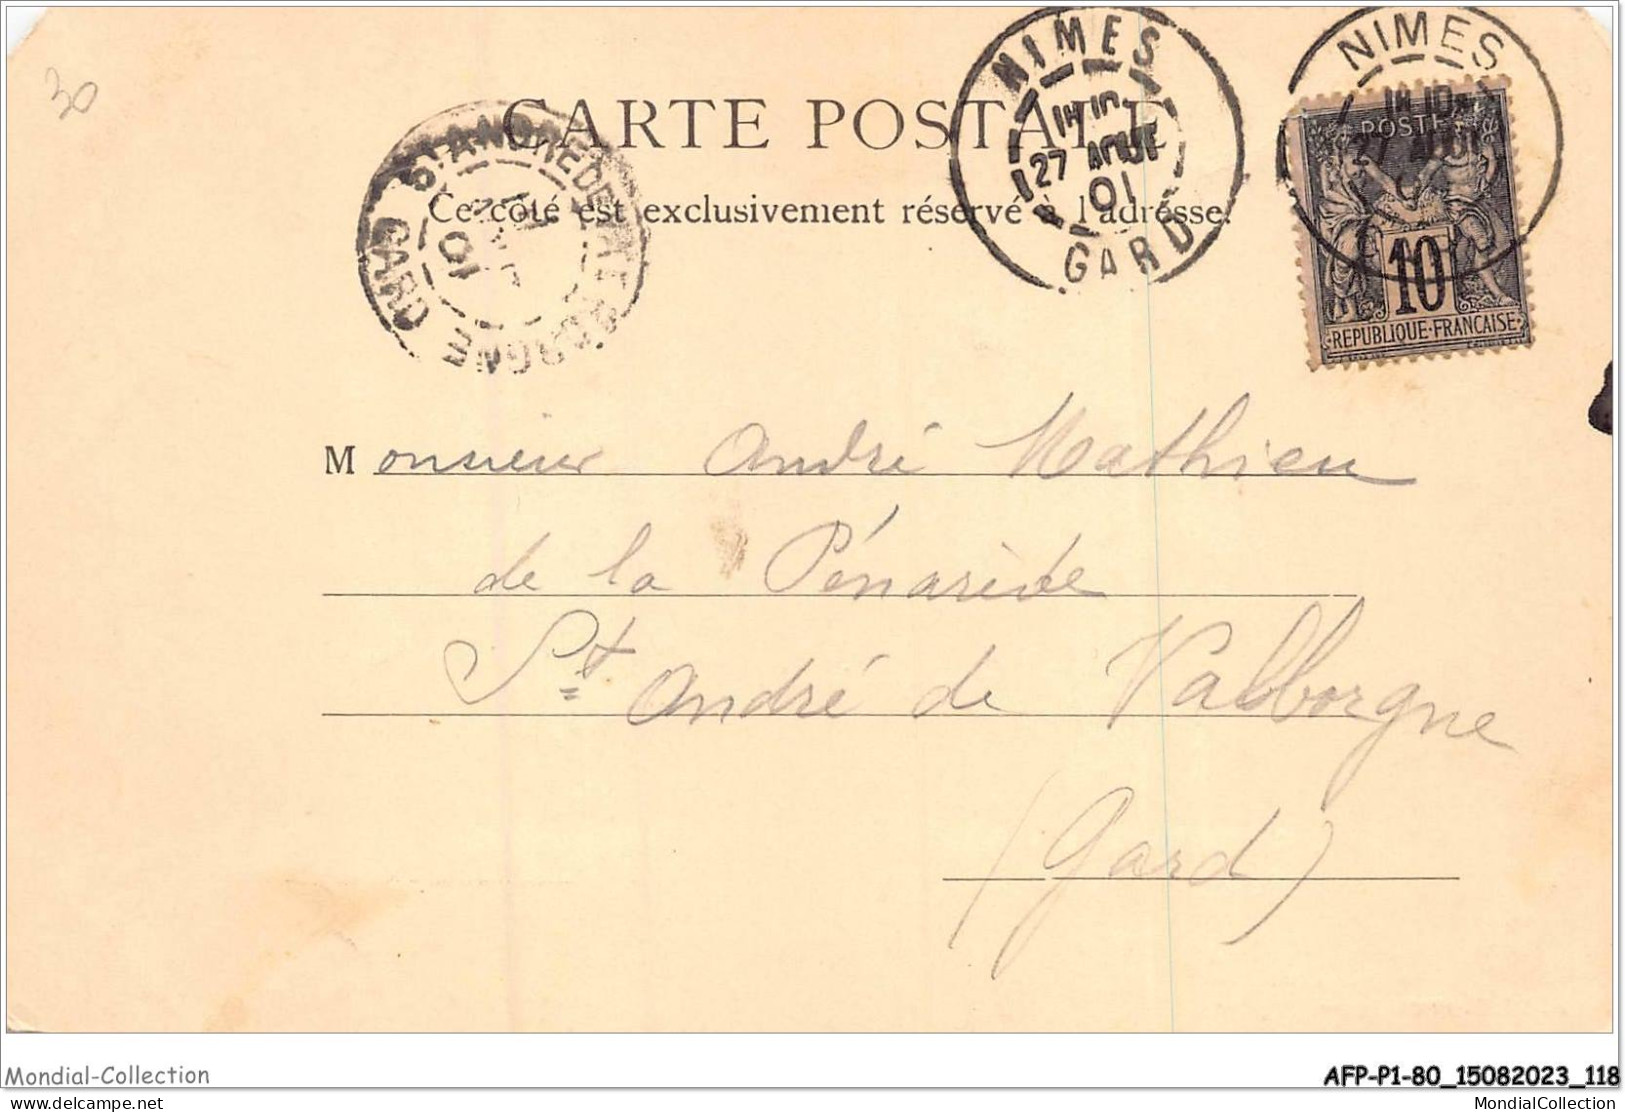 30
NIMES
1H 10
27 AOUT
01
GARD
NIMES
1H 10
27 AOUT
POSTE
10
REPUBLIQUE·FRANÇAISE
CARTE POSTALE
ST ANDRE DE VALBORGNE
01
GARD
Ce côté est exclusivement réservé à l'adresse.
Monsieur André Mathieu
de la Pénaride
St André de Valborgne
(Gard)
Mondial-Collection
AFP-P1-80_15082023_118
delcampe.net
MondialCollection